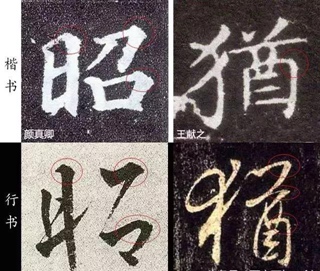 楷书
昭
猶
颜真卿
王献之
行书
昭
猶